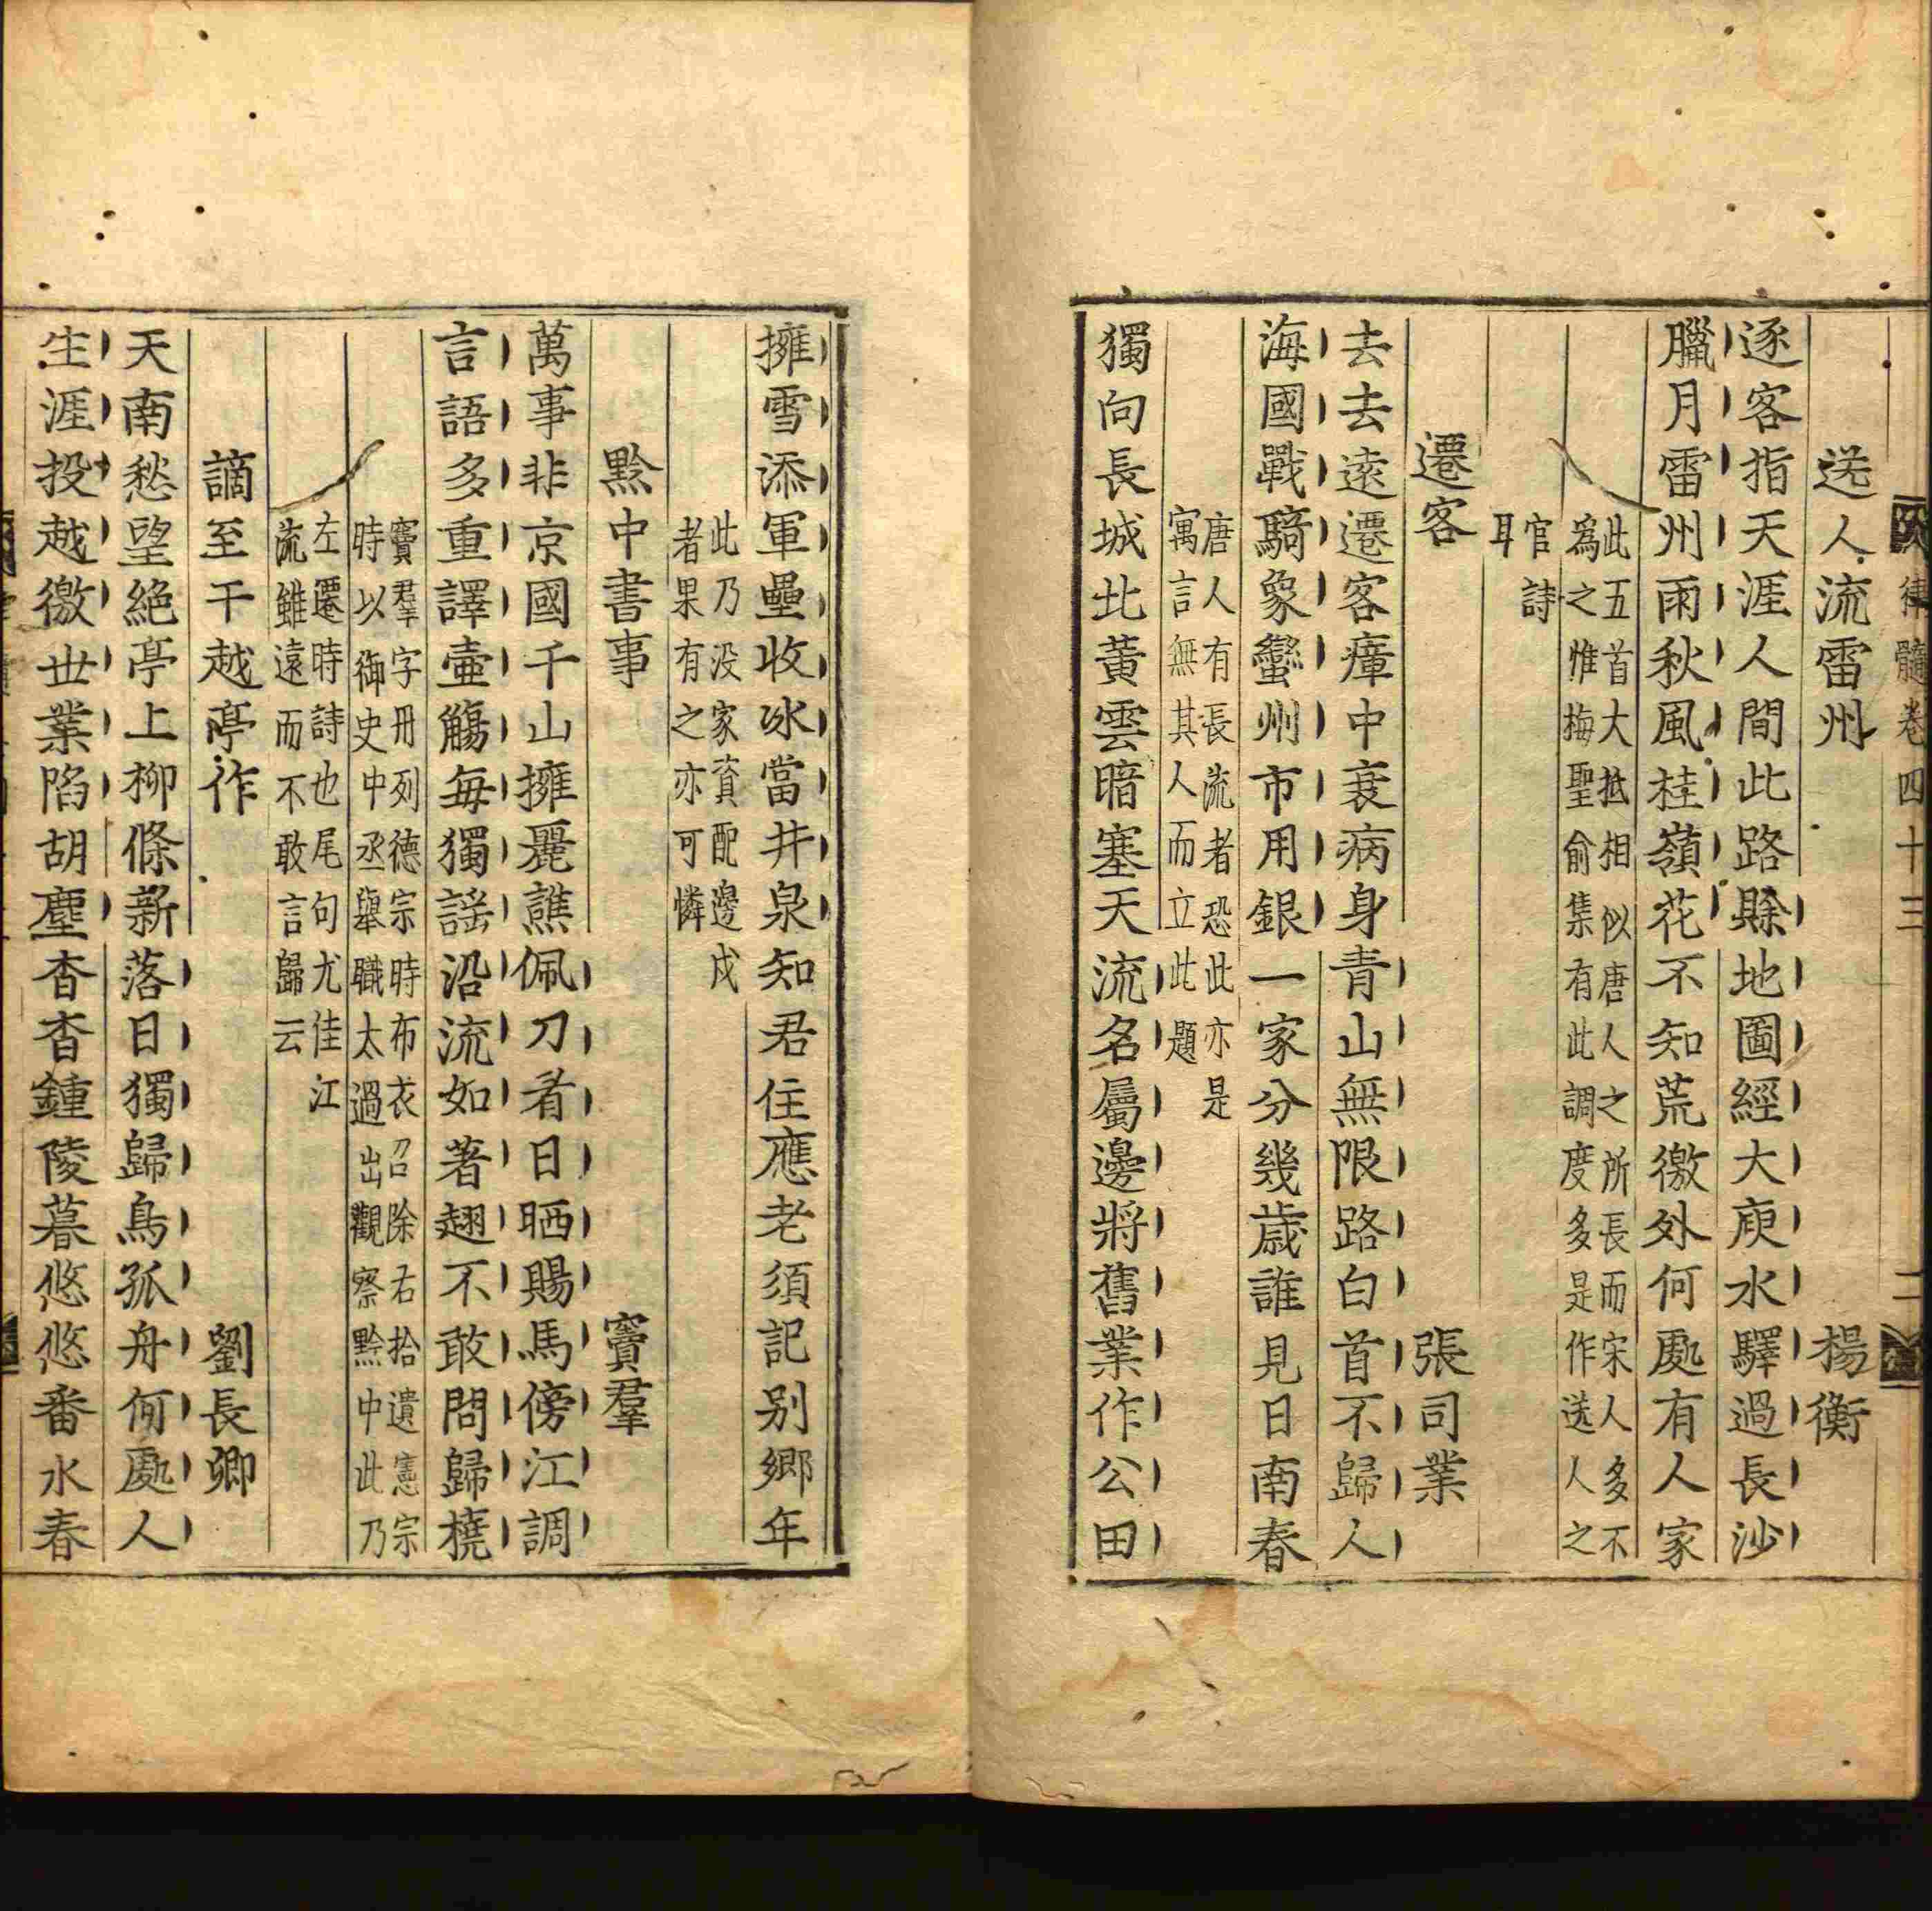 律髓卷四十三 二
送人流雷州 楊衡
逐客指天涯人間此路賖地圖經大庾水驛過長沙
臘月雷州雨秋風桂嶺花不知荒徼外何處有人家
此五首大抵相似唐人之所長而宋人多不
爲之惟梅聖俞集有此調度多是作送人之
官詩
耳
遷客 張司業
去去遠遷客瘴中衰病身青山無限路白首不歸人
海國戰騎象蠻州市用銀一家分幾歲誰見日南春
唐人有長流者恐此亦是
寓言無其人而立此題
獨向長城北黃雲暗塞天流名屬邊將舊業作公田
擁雪添軍壘收冰當井泉知君住應老須記别鄉年
此乃没家資配邊戍
者果有之亦可憐
黔中書事 竇羣
萬事非京國千山擁麗譙佩刀看日晒賜馬傍江調
言語多重譯壷觴每獨謡沿流如著翅不敢問歸橈
竇羣字丹列德宗時布衣召除右拾遺憲宗
時以御史中丞舉職太過出觀察黔中此乃
左遷時詩也尾句尤佳江
流雖遠而不敢言歸云
謫至干越亭作 劉長卿
天南愁望絶亭上柳條新落日獨歸鳥孤舟何處人
生涯投越徼世業陷胡塵杳杳鍾陵暮悠悠番水春